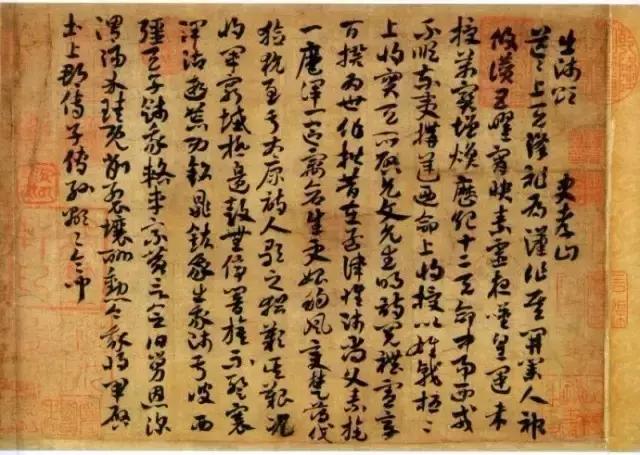 出師頌 史孝山
茫茫上天降祚為漢作基開業人神
攸讚五曜宵映素靈夜嘆皇運未
授萬寶增煥歷紀十二天命中易西戎
不順東夷構逆乃命上將授以雄戟桓桓
上將實天所啟允文允武明詩閱禮憲章
百揆為世作楷昔在孟津惟師尚父素旄
一麾渾一區宇蒼生更始朔風變楚薄伐
獫狁至于太原詩人歌之猶嘆其艱況我
將軍窮城極邊鼓無停響旗不蹔褰
澤沾遐荒功銘鼎鉉我出我師于彼西
疆天子餞我路車乘黃言念伯舅恩深
渭陽介珪既削裂壤酬勳今我將軍啟
土上郡傳子傳孫顯顯令問